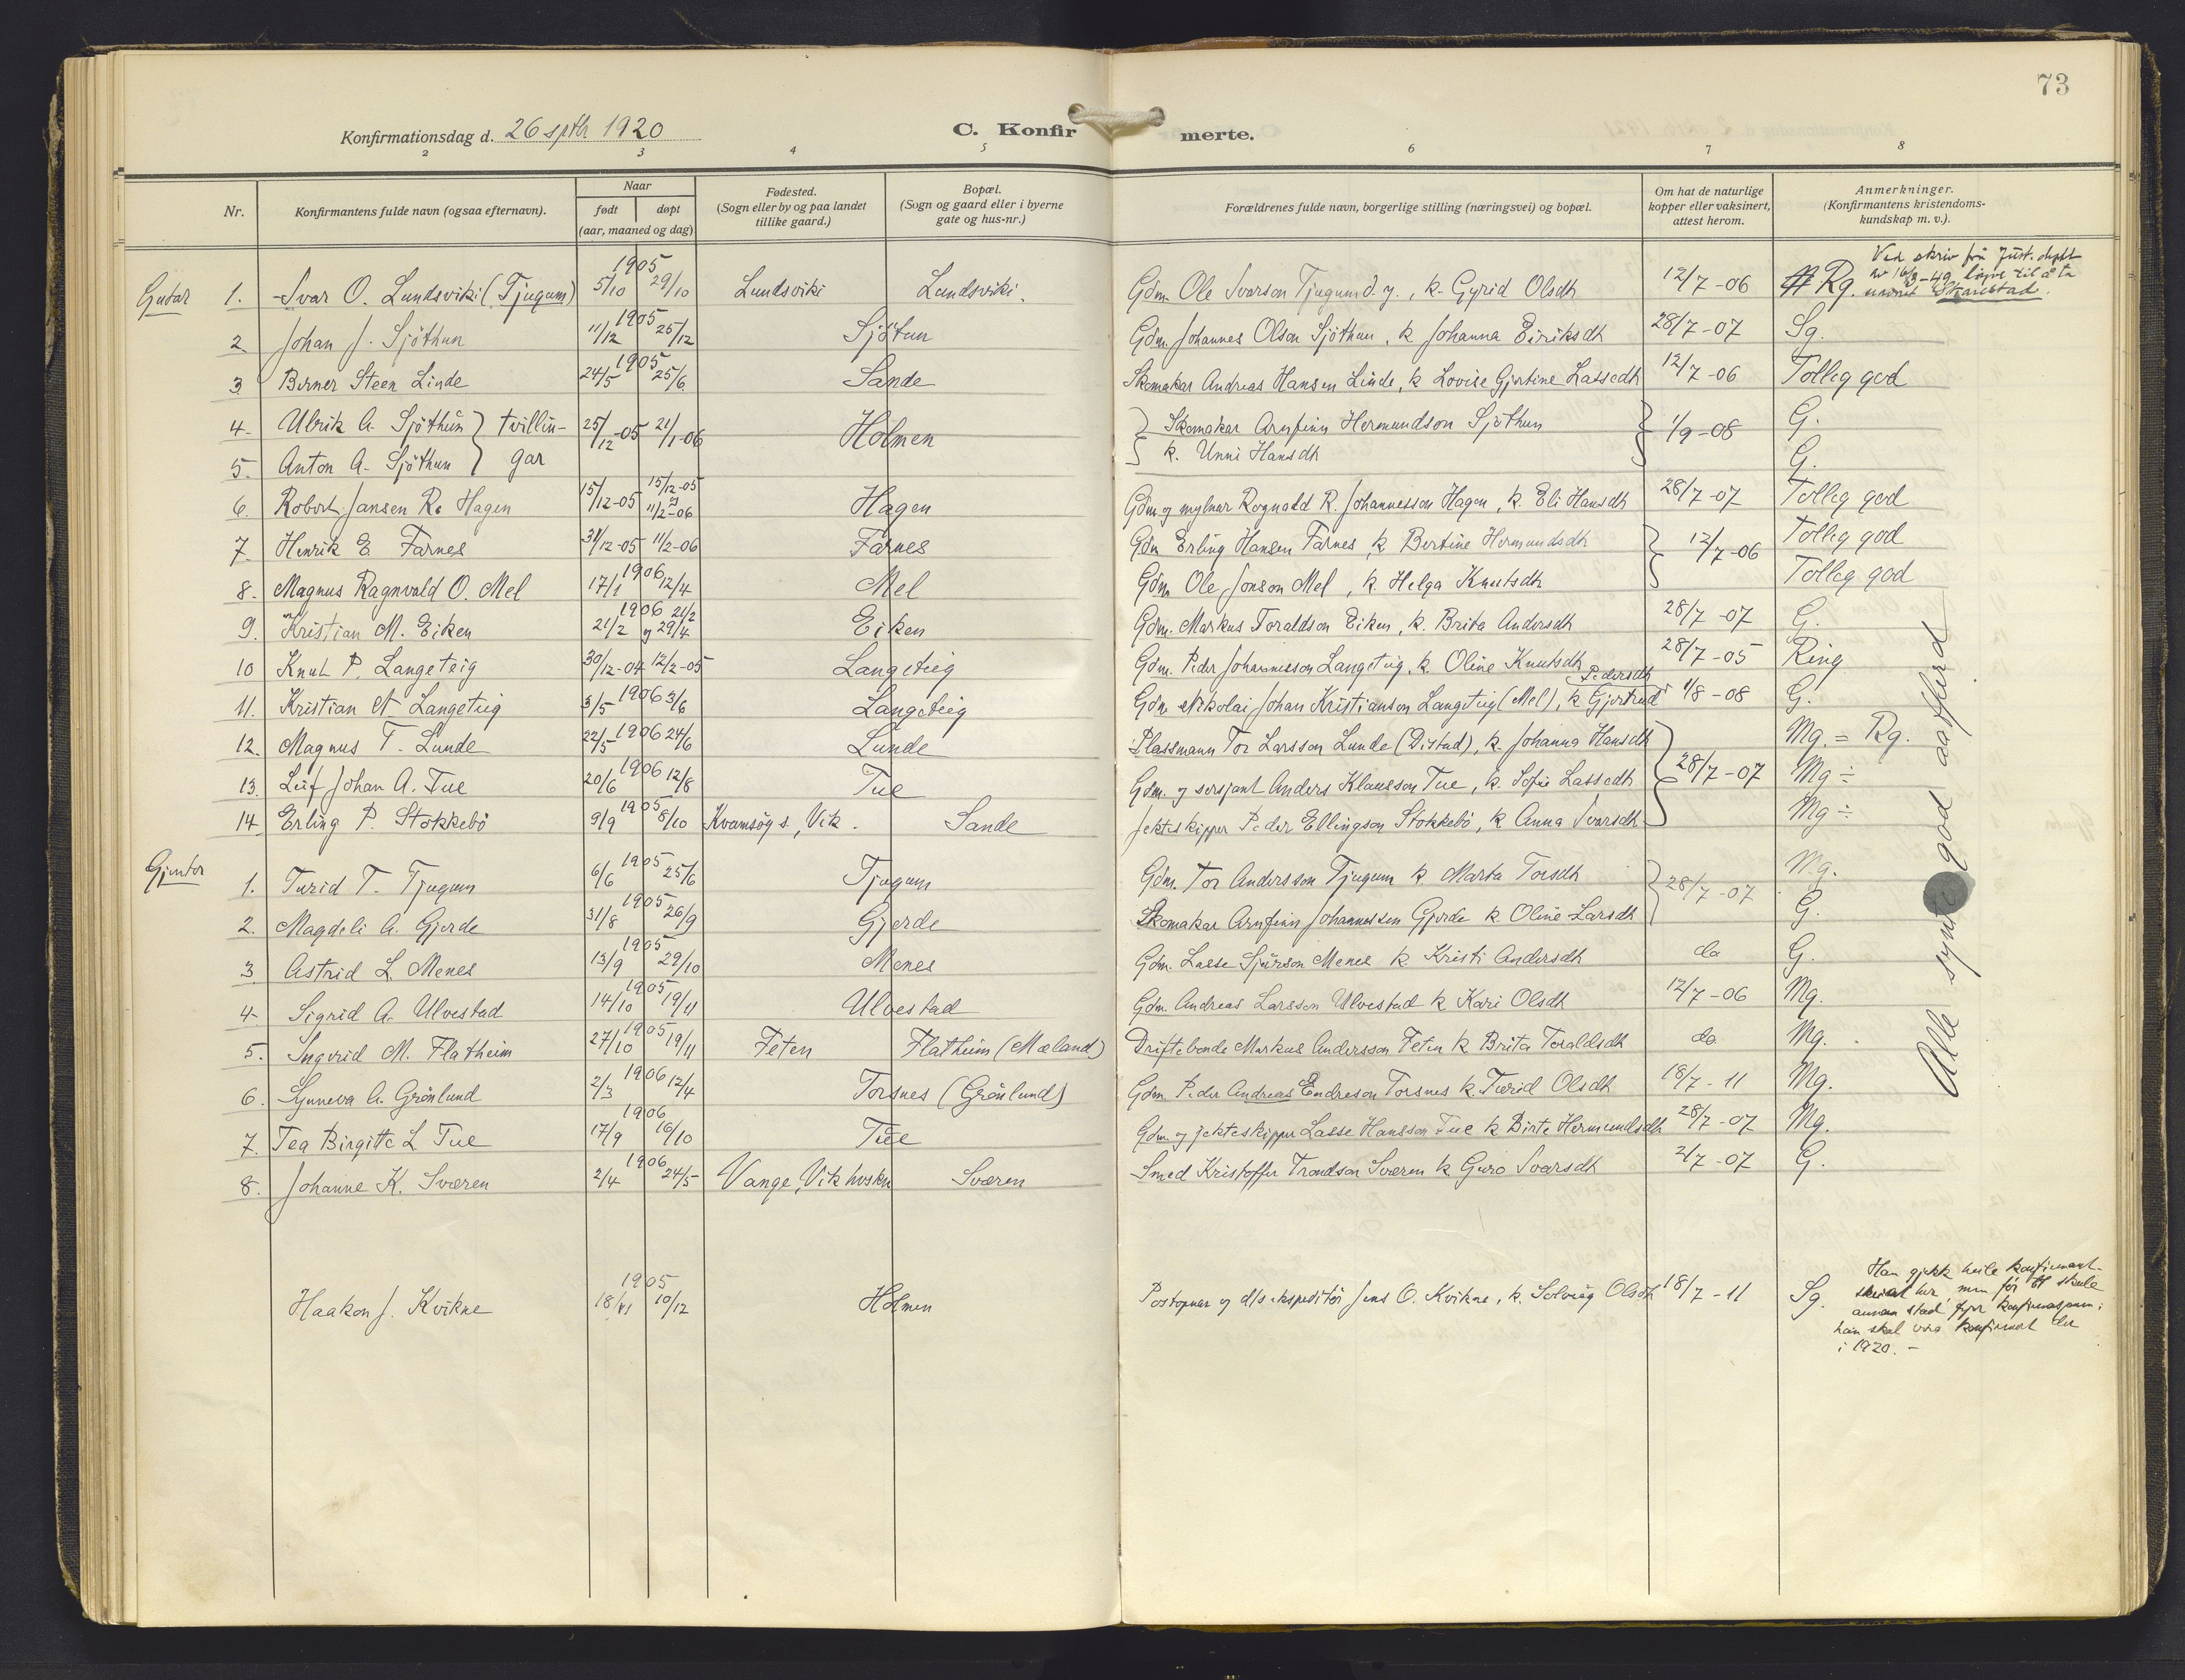 73
Konfirmationsdag d. 26 septb 1920
C. Konfirmerte.
2 3 4 5 6 7 8
Nr.
Konfirmantens fulde navn (ogsaa efternavn).
Naar
født døpt
(aar, maaned og dag)
Fødested.
(Sogn eller by og paa landet
tillike gaard.)
Bopæl.
(Sogn og gaard eller i byerne
gate og hus-nr.)
Forældrenes fulde navn, borgerlige stilling (næringsvei) og bopæl.
Om hat de naturlige
kopper eller vaksinert,
attest herom.
Anmerkninger.
(Konfirmantens kristendoms-
kundskap m. v.).
Gutar 1. Ivar O. Lundsviki (Tjugum) 1905 5/10 29/10 Lundsviki Lundsviki. Gdm. Ole Ivarson Tjugum d. y., k. Gyrid Olsdh 12/7-06 Rg. Ved skriv frå Just. dept av 16/3-49 løyve til å ta namnet Skarestad.
2 Johan J. Sjöthun 1905 11/12 25/12 Sjötun Gdm. Johannes Olson Sjöthun, k Johanna Eiriksdh 28/7-07 Sg.
3 Berner Steen Linde 1905 24/5 25/6 Sande Skomakar Andreas Hansen Linde, k Lovise Gjertine Lassedh 12/7-06 Tolleg god
4. Ulrik A. Sjöthun } tvillin- 25/12-05 21/1-06 Holmen Skomakar Arnfinn Hermundson Sjöthun 1/9-08 G.
5. Anton A. Sjöthun } gar k. Unni Hansdh G.
6. Robert Jansen R. Hagen 15/12-05 15/12-05 og 11/2-06 Hagen Gdm. og mylnar Rognald R. Johannesson Hagen, k. Eli Hansdh 28/7-07 Tolleg god
7. Henrik E Farnes 31/12-05 11/2-06 Farnes Gdm Erling Hansen Farnes, k Bertine Hermundsdh 12/7-06 Tolleg god
8. Magnus Ragnvald O. Mel 1906 17/1 12/4 Mel Gdm Ole Jonson Mel, k. Helga Knutsdh Tolleg god
9. Kristian M. Eiken 1906 21/2 21/2 og 29/4 Eiken Gdm. Markus Toraldson Eiken, k. Brita Andersdh 28/7-07 G.
10 Knut P. Langeteig 30/12-04 12/2-05 Langeteig Gdm. Peder Johannesson Langeteig, k. Oline Knutsdh 28/7-05 Ring
11. Kristian N Langeteig 1906 3/5 3/6 Langeteig Gdm Nikolai Johan Kristianson Langeteig (Mel), k Gjertrud Pedersdh 1/8-08 G.
12. Magnus T. Lunde 1906 22/5 24/6 Lunde Plassmann Tor Larsson Lunde (Distad), k. Johanna Hansdh 28/7-07 Mg. = Rg.
13. Leif Johan A. Tue 1906 20/6 12/8 Tue Gdm. og sersjant Anders Klausson Tue, k. Sofie Lassedh Mg ÷
14 Erling P. Stokkebö 1905 9/9 8/10 Kvamsöy s., Vik. Sande Jekteskipper Peder Ellingson Stokkebö, k Anna Ivarsdh Mg ÷
Gjentor 1. Turid T. Tjugum 1905 6/6 25/6 Tjugum Gdm. Tor Andersson Tjugum k Marta Torsdh 28/7-07 Mg.
2. Magdeli A. Gjerde 1905 31/8 26/9 Gjerde Skomakar Arnfinn Johannessen Gjerde k Oline Larsdh G.
3 Astrid L Menes 1905 13/9 29/10 Menes Gdm. Lasse Sjurson Menes k Kristi Andersdh do G.
4. Sigrid A. Ulvestad 1905 14/10 19/11 Ulvestad Gdm. Andreas Larsson Ulvestad k Kari Olsdh 12/7-06 Mg.
5. Ingerid M. Flatheim 1905 27/10 19/11 Feten Flatheim (Mæland) Driftebonde Markus Andersson Feten k Brita Toraldsdh do Mg.
6. Synneva A. Grönlund 1906 2/3 12/4 Torsnes (Grönlund) Gdm Peder Andreas Endreson Torsnes k. Turid Olsdh 18/7-11 Mg.
7. Tea Birgitte L Tue 1906 17/9 16/10 Tue Gdm. og jekteskipper Lasse Hansson Tue k Birte Hermundsdh 28/7-07 Mg.
8. Johanne K. Sværen 1906 2/4 24/5 Vange, Vik Sværen Smed Kristoffer Trondson Sværen k Guro Ivarsdh 2/7-07 G.
Alle synte god aatferd
Haakon J. Kvikne 1905 18/11 10/12 Holmen Postopnar og d/s ekspeditör Jens O. Kvikne, k. Solveig Olsdh 18/7-11 Sg.
Han gjekk heile konfirmant-
skulen her, men för til skule
annan stad fyr konfirmasjonen;
han skal vera konfirmert der
i 1920. –